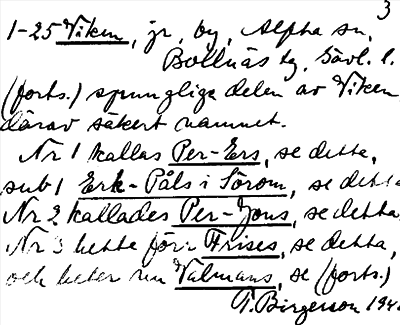 3
1-25 Viken, jr, by, Alfta sn,
Bollnäs tg, Gävl. l.
(forts.) sprungliga delen av Viken,
därav säkert namnet.
Nr 1 kallas Per-Ers, se detta,
sub 1 Erk-Påls i Sörom, se detta
Nr 2 kallades Per-Jons, se detta
Nr 3 hette förr Frises, se detta,
och heter nu Valmans, se (forts.)
T. Birgerson 194